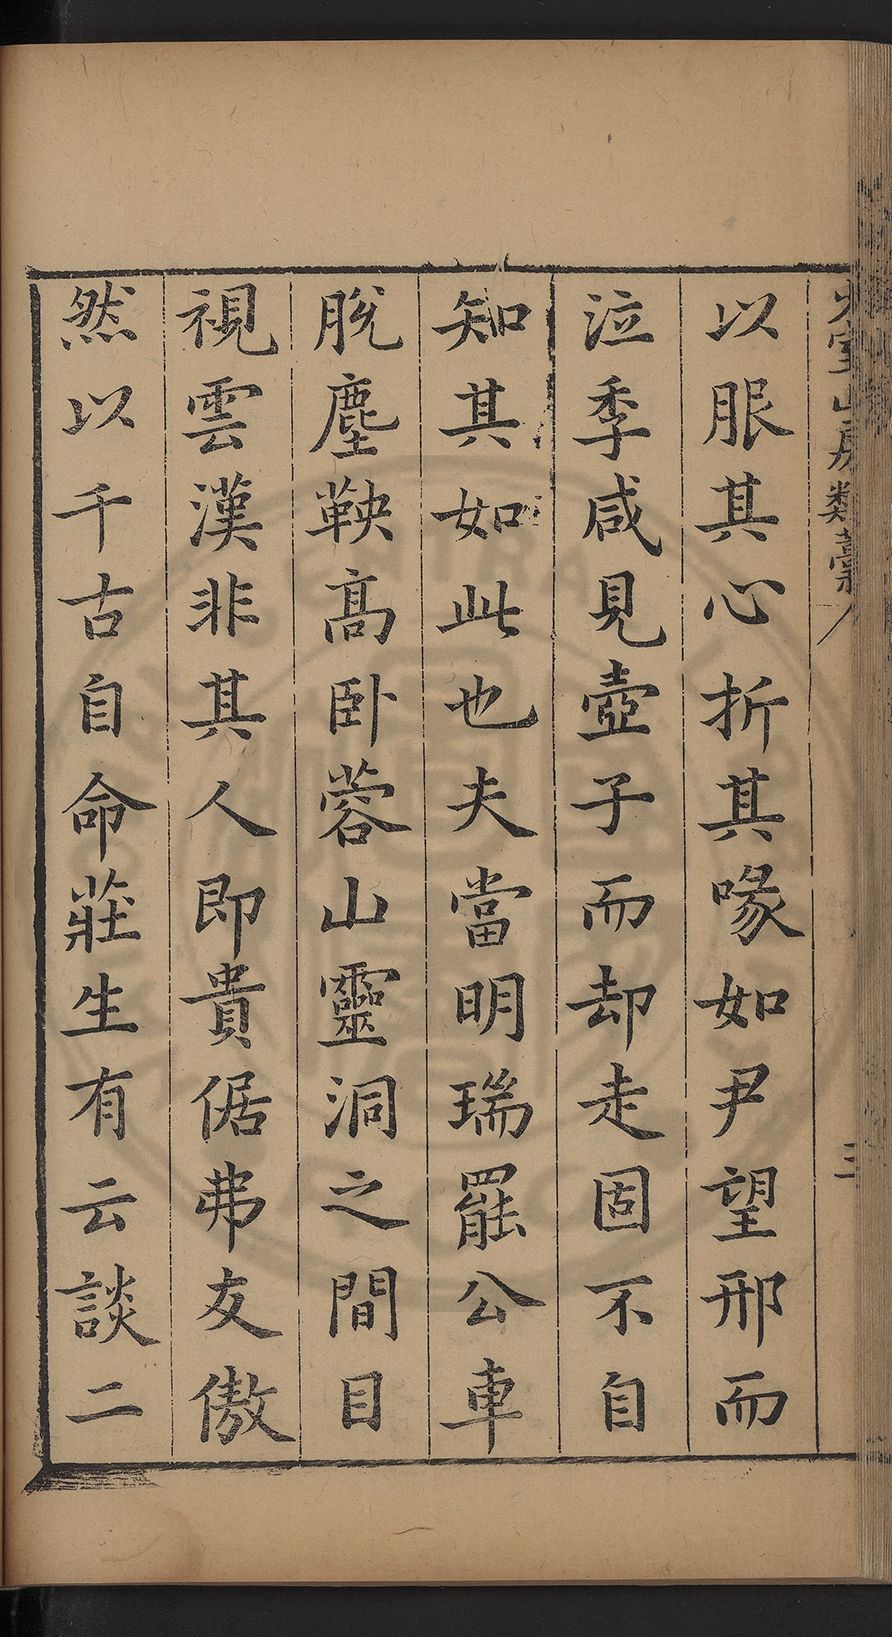 少室山房類藁
三
以服其心折其喙如尹望邢而
泣季咸見壺子而却走固不自
知其如此也夫當明瑞罷公車
脫塵鞅高卧蓉山靈洞之間目
視雲漢非其人即貴倨弗友傲
然以千古自命莊生有云談二